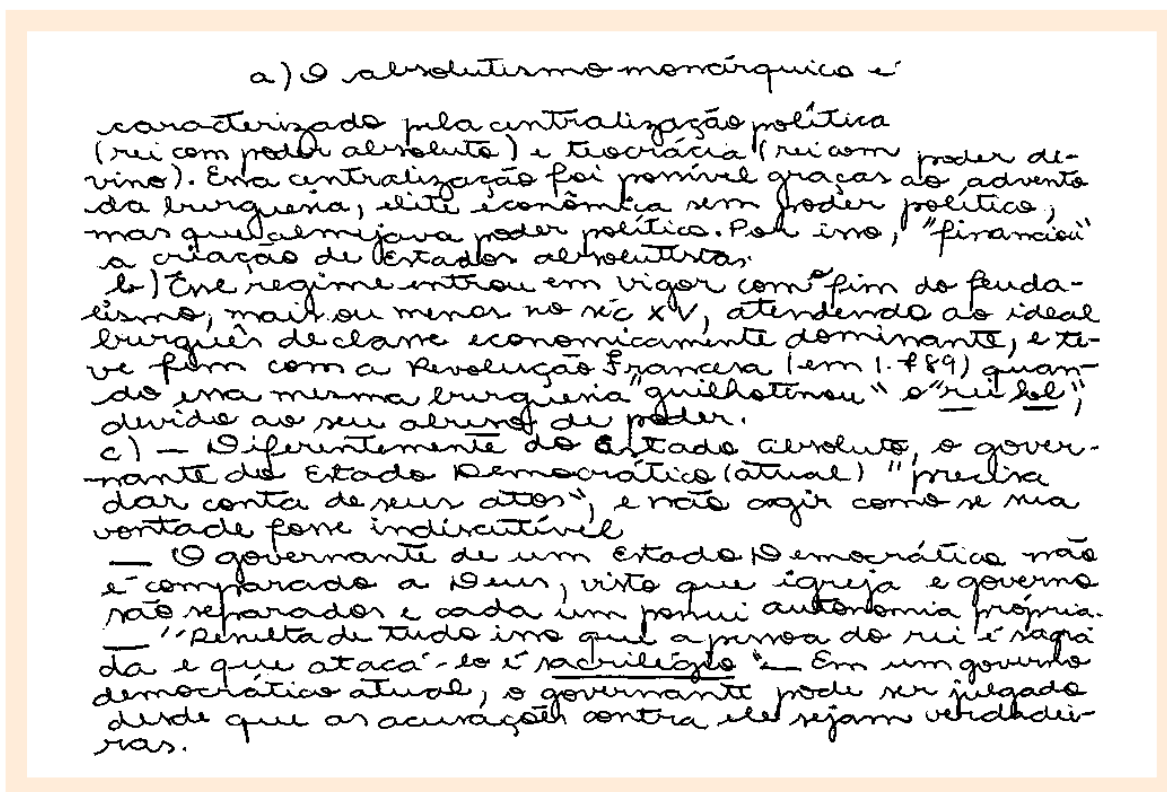 a) O absolutismo monárquico é
caracterizado pela centralização política
(rei com poder absoluto) e teocrácia (rei com poder di-
vino). Essa centralização foi possível graças ao advento
da burguesia, elite econômica sem poder político,
mas que almejava poder político. Por isso, "financiou"
a criação de Estados absolutistas.
b) Esse regime entrou em vigor com o fim do feuda-
lismo, mais ou menos no séc XV, atendendo ao ideal
burguês de classe economicamente dominante, e te-
ve fim com a Revolução Francesa (em 1.789) quan-
do essa mesma burguesia "guilhotinou" o "rei sol",
devido ao seu abuso de poder.
c) — Diferentemente do Estado absoluto, o gover-
nante do Estado Democrático (atual) "precisa
dar conta de seus atos", e não agir como se sua
vontade fosse indiscutível
— O governante de um Estado Democrático não
é comparado a Deus, visto que igreja e governo
são separados e cada um possui autonomia própria.
— "Resulta de tudo isso que a pessoa do rei é sagra
da e que atacá-lo é sacrilégio" — Em um governo
democrático atual, o governante pode ser julgado
desde que as acusações contra ele sejam verdadei-
ras.